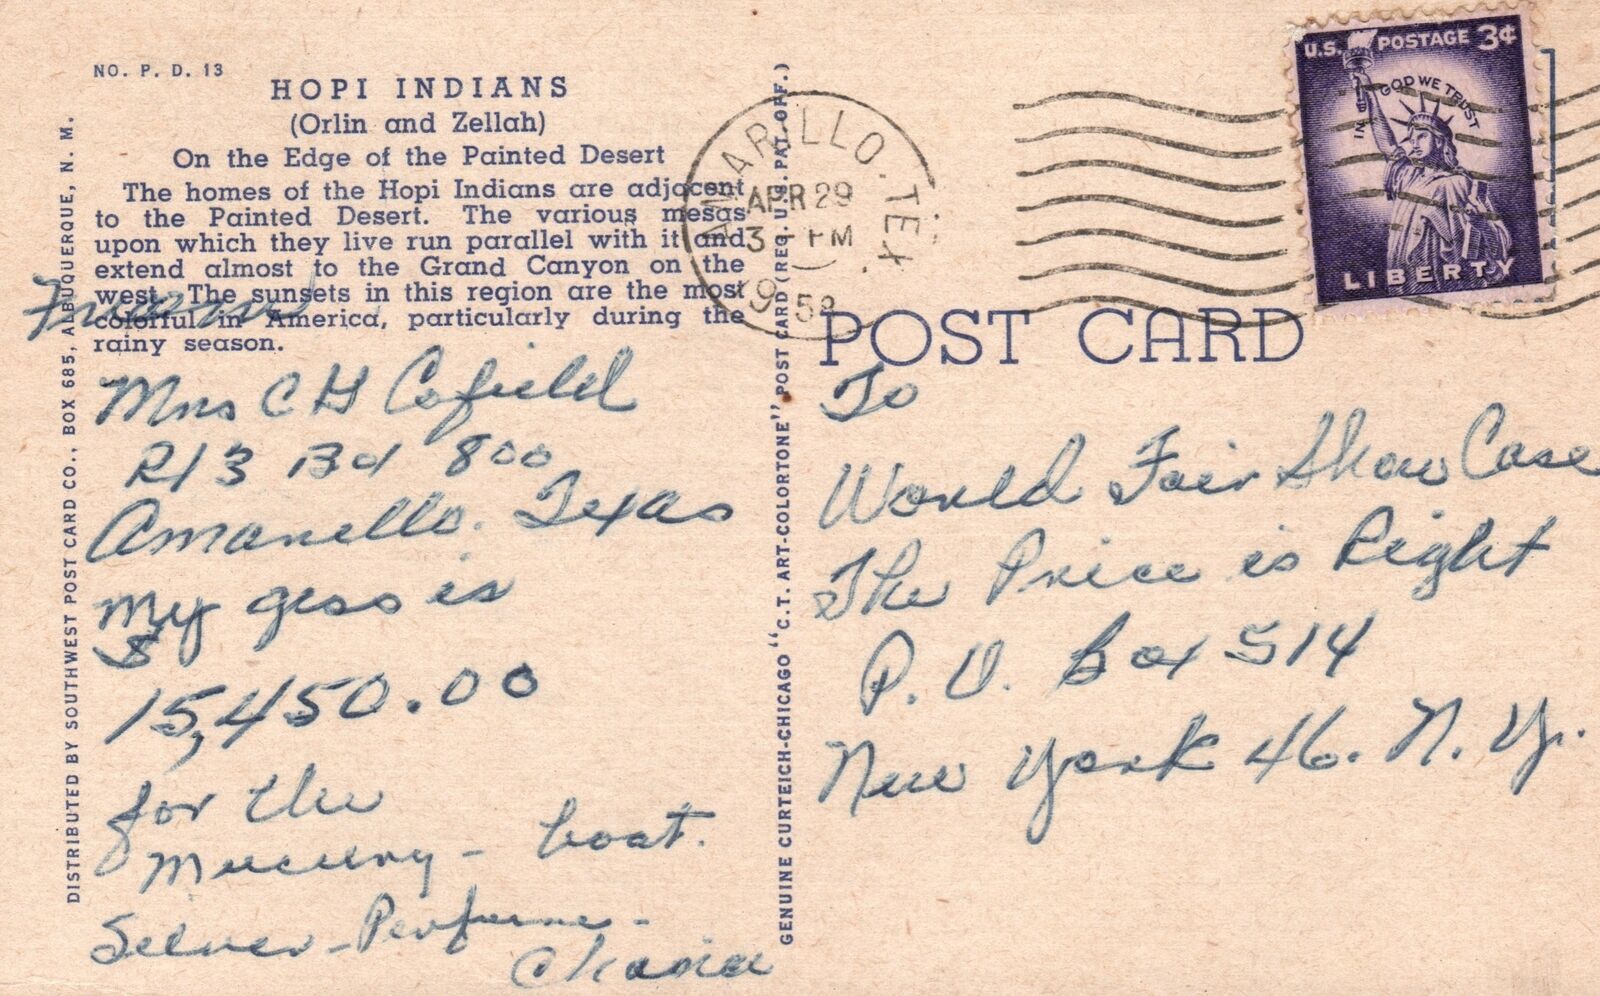 NO. P. D. 13
HOPI INDIANS
(Orlin and Zellah)
On the Edge of the Painted Desert
The homes of the Hopi Indians are adjacent
to the Painted Desert. The various mesas
upon which they live run parallel with it and
extend almost to the Grand Canyon on the
west. The sunsets in this region are the most
colorful in America, particularly during the
rainy season.
DISTRIBUTED BY SOUTHWEST POST CARD CO., BOX 685, ALBUQUERQUE, N. M.
Mrs C H Cofield
Rt 3 Box 800
Amarello. Texas
My gess is
$
15,450.00
for the
Mucury - boat.
Selver - Perfume -
GENUINE CURTEICH-CHICAGO "C. T. ART-COLORTONE" POST CARD (REG. U.S. PAT. OFF.)
AMARILLO. TEX.
APR 29
3 PM
19 58
U.S. POSTAGE 3¢
IN GOD WE TRUST
LIBERTY
POST CARD
To
World Fair Show Case
The Price is Right
P. O. Box 514
New York 46. N. Y.